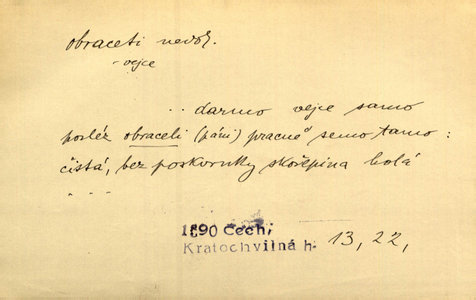 obraceti nedok.
- vejce
.. darmo vejce samo
posléz obraceli (páni) pracně semo tamo:
čistá, bez poskvrnky skořepina holá
- - -
1890 Čech,
Kratochvilná h. 13, 22,